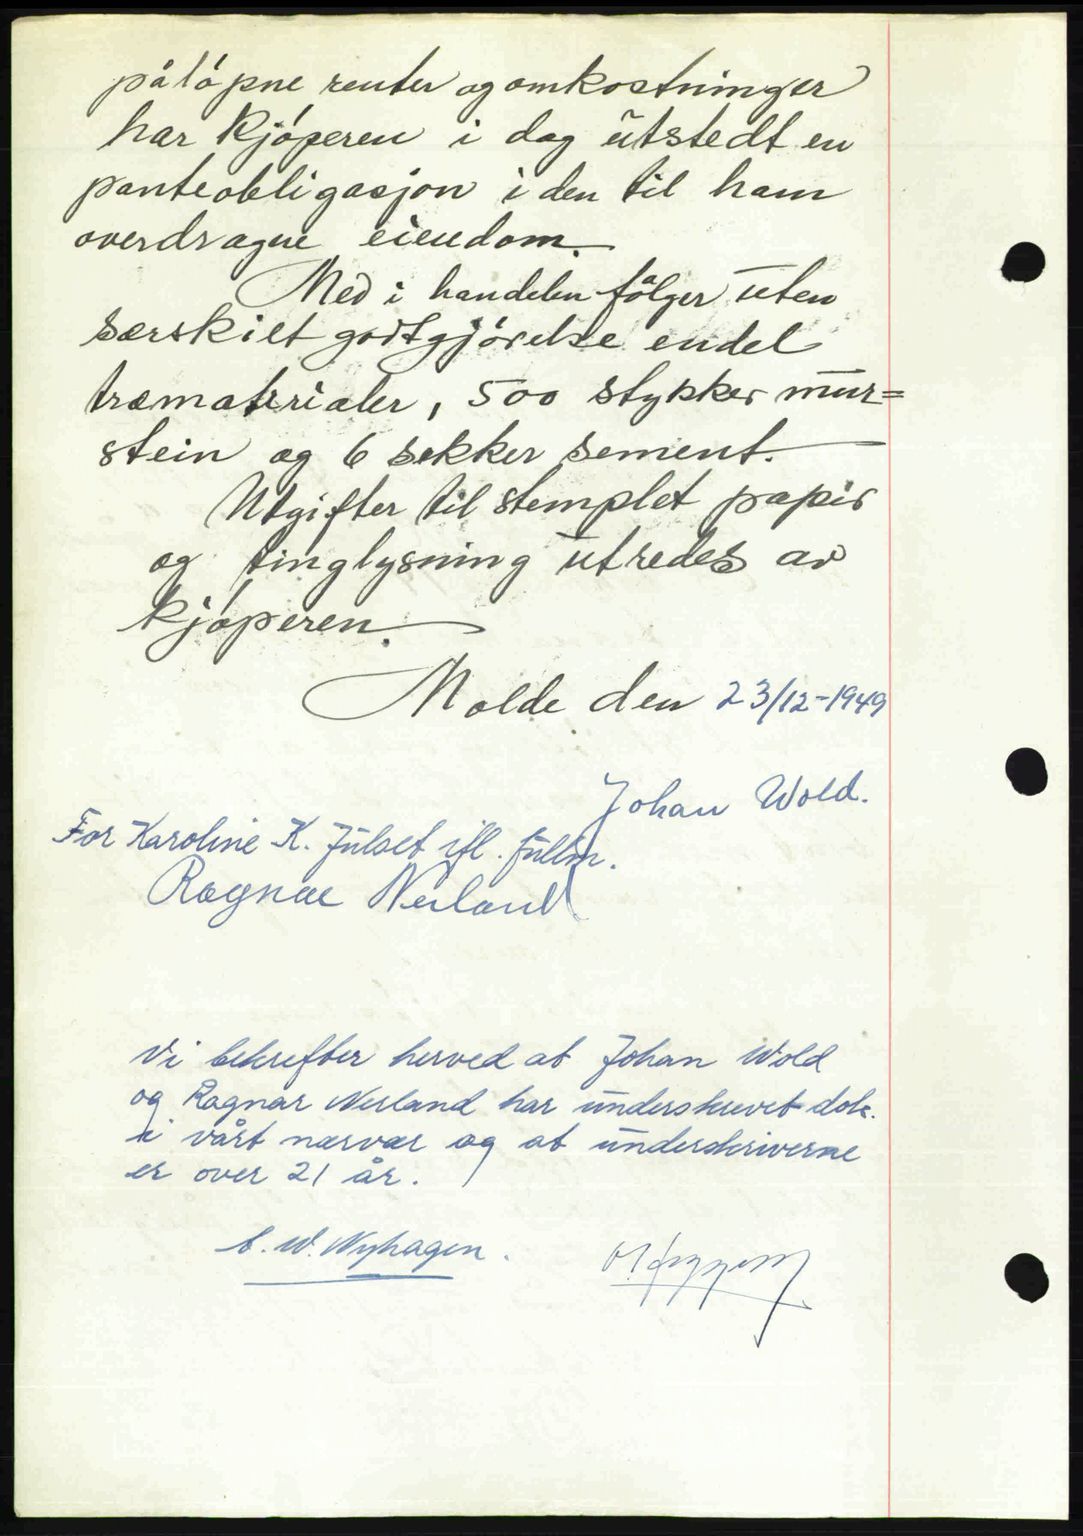 påløpne renter og omkostninger
har kjøperen i dag utstedt en
panteobligasjon i den til ham
overdragne eiendom.
Med i handelen følger uten
særskilt godtgjørelse endel
træmaterialer, 500 stykker mur=
stein og 6 sekker sement.
Utgifter til stemplet papir
og tinglysning utredes av
kjøperen.
Molde den 23/12-1949
Johan Wold.
For Karoline K. Julset ifl. fullm.
Ragnar Nerland
Vi bekrefter herved at Johan Wold
og Ragnar Nerland har underskrevet dok.
i vårt nærvær og at underskriverne
er over 21 år.
W. Nyhagen.